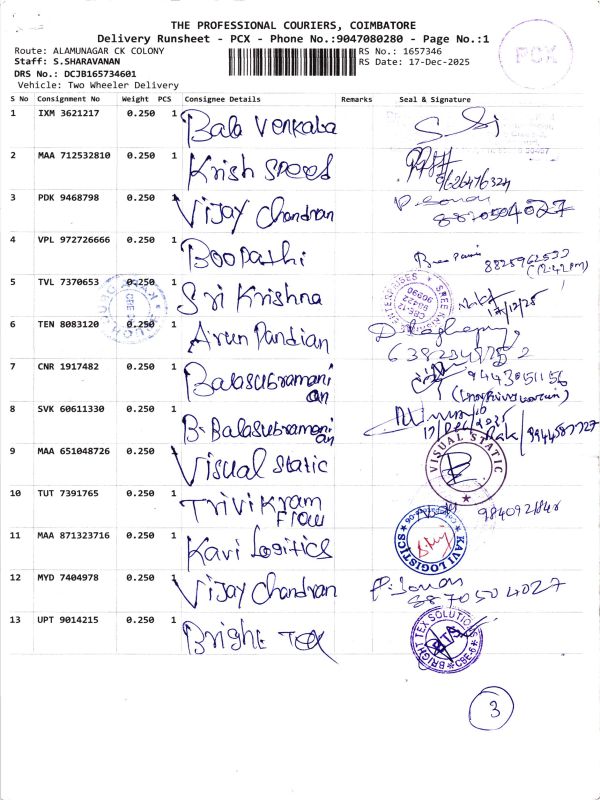 THE PROFESSIONAL COURIERS, COIMBATORE
Delivery Runsheet - PCX - Phone No.:9047080280 - Page No.:1
Route: ALAMUNAGAR CK COLONY
RS No.: 1657346
Staff: S.SHARAVANAN
RS Date: 17-Dec-2025
DRS No.: DCJB165734601
Vehicle: Two Wheeler Delivery
PCX
S No Consignment No Weight PCS Consignee Details Remarks Seal & Signature
1 IXM 3621217 0.250 1 Bala Venkaba
2 MAA 712532810 0.250 1 Krish Speed 9626476324
3 PDK 9468798 0.250 1 Vijay Chandran 8870504027
4 VPL 972726666 0.250 1 Boopathi
5 TVL 7370653 0.250 1 Sri Krishna 17/12/25
6 TEN 8083120 0.250 1 Arun Pandian
7 CNR 1917482 0.250 1 Balasubramanian
8 SVK 60611330 0.250 1 B. Balasubramanian
9 MAA 651048726 0.250 1 Visual Static VISUAL STATIC
10 TUT 7391765 0.250 1 Trivikram Flow
11 MAA 871323716 0.250 1 Kavi Logitics KAVI LOGISTICS
12 MYD 7404978 0.250 1 Vijay Chandran 8870504027
13 UPT 9014215 0.250 1 Bright Tex BRIGHT TEX SOLUTIONS BTS CBE-6
3